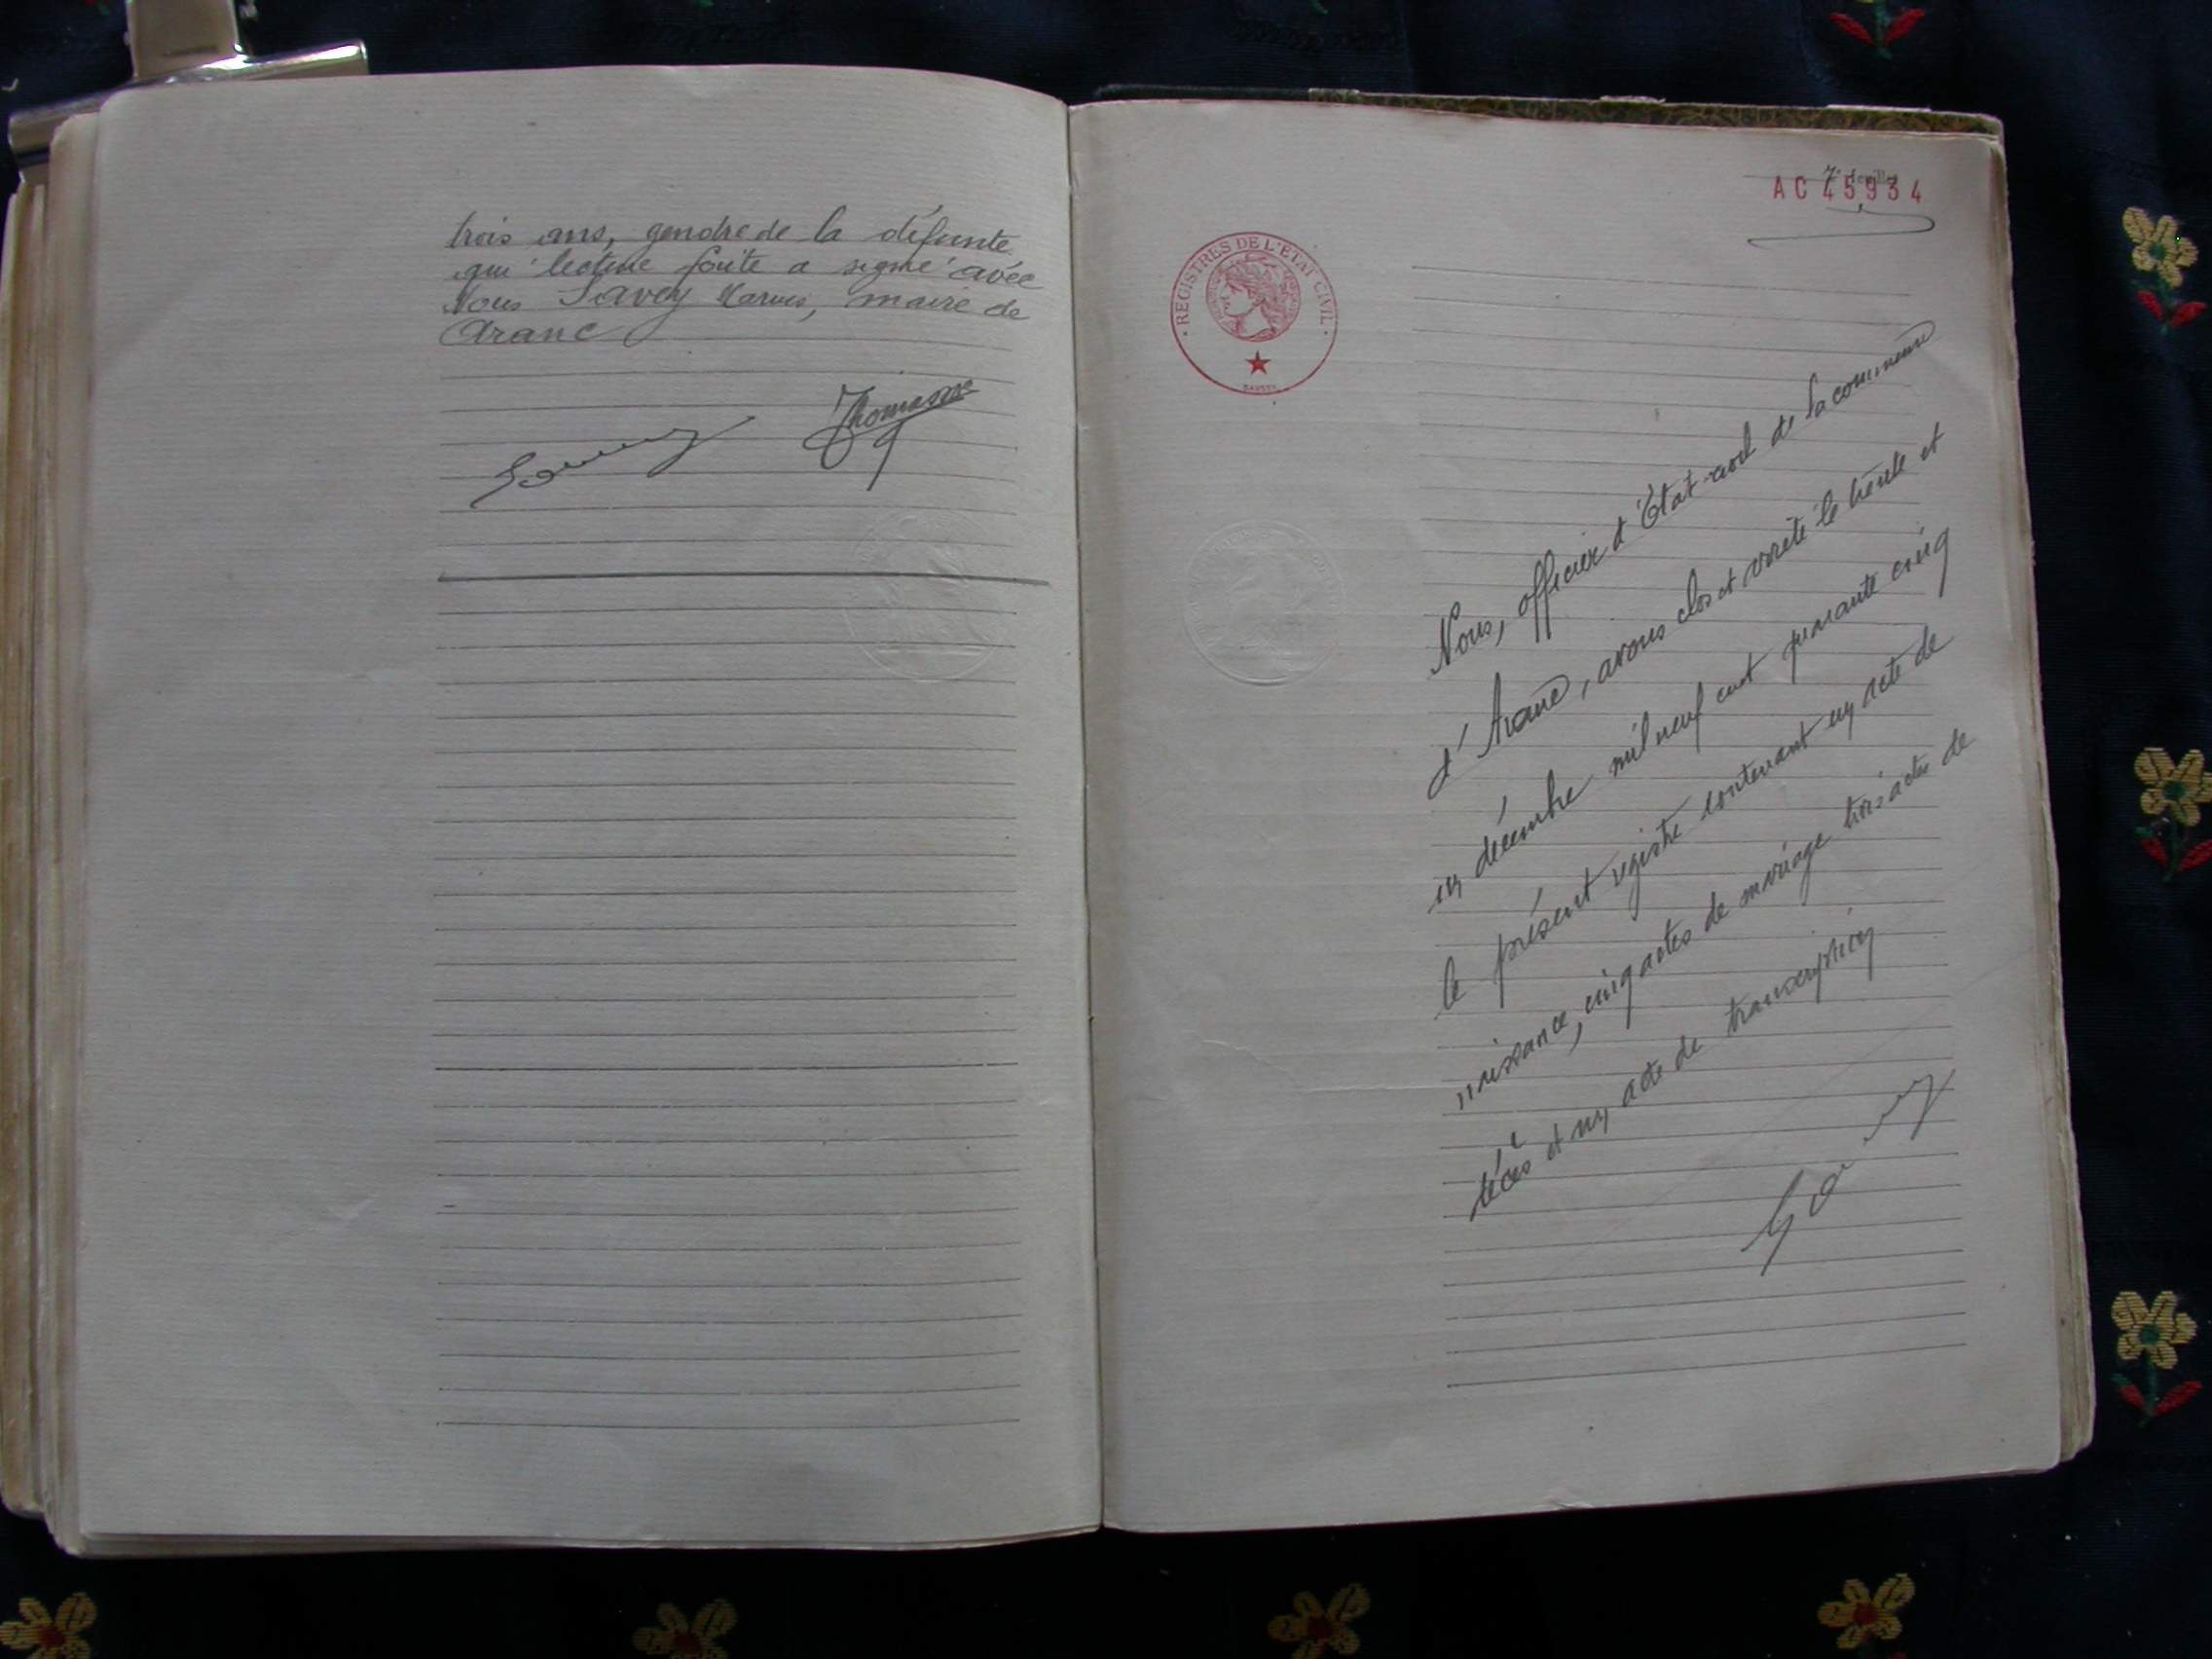 trois ans, gendre de la défunte
qui lecture faite a signé avec
Nous Savey Marius, maire de
Aranc
Thomasse
AC 45934
7e feuillet
REGISTRES DE L'ETAT CIVIL
Nous, officier d'Etat-civil de la commune
d'Aranc, avons clos et arrêté le trente et
un décembre mil neuf cent quarante cinq
le présent registre contenant un acte de
naissance, cinq actes de mariage trois actes de
décès et un acte de transcription